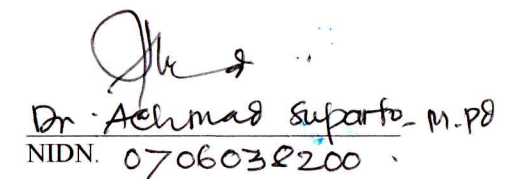 Dr. Achmad Suparto_ M.Pd
NIDN. 0706038200